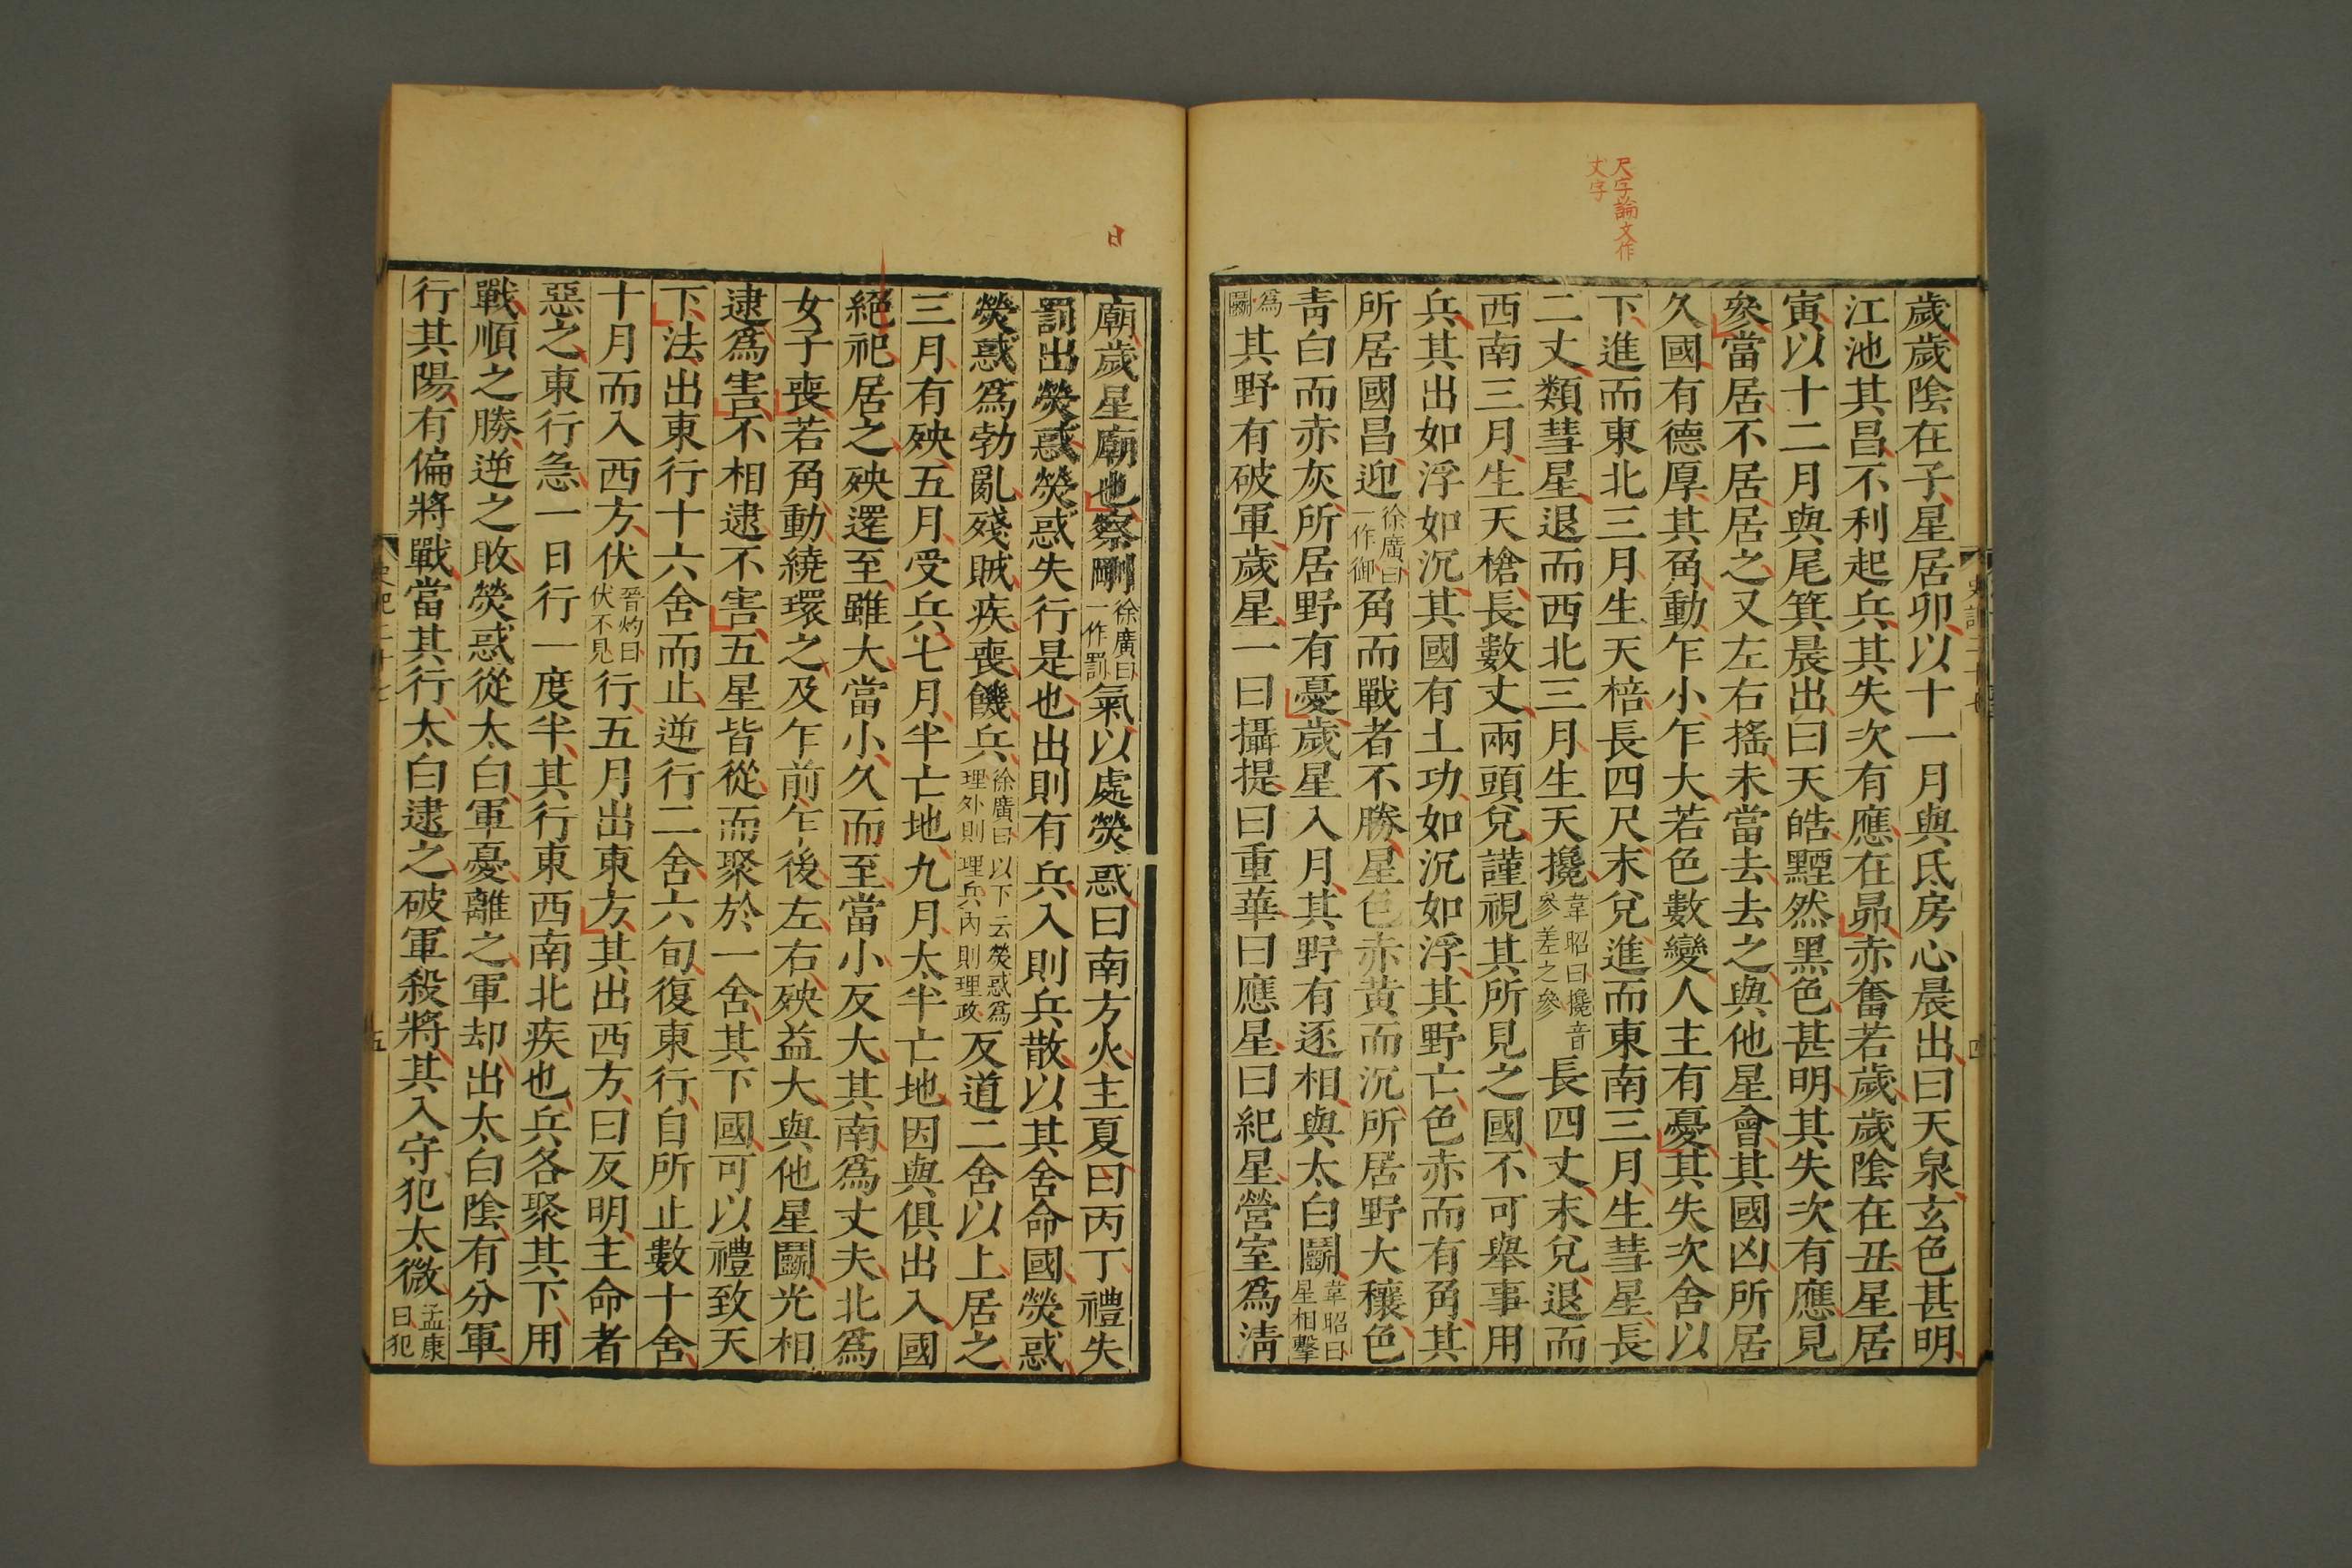 尺字論文作
丈字
歲歲陰在子星居卯以十一月與氐房心晨出曰天泉玄色甚明
江池其昌不利起兵其失次有應在昴赤奮若歲歲陰在丑星居
寅以十二月與尾箕晨出曰天皓黫然黑色甚明其失次有應見
參當居不居居之又左右搖未當去去之與他星會其國凶所居
久國有德厚其角動乍小乍大若色數變人主有憂其失次舍以
下進而東北三月生天棓長四尺末兌進而東南三月生彗星長
二丈類彗星退而西北三月生天欃韋昭曰欃音參差之參長四丈末兌退而
西南三月生天槍長數丈兩頭兌謹視其所見之國不可舉事用
兵其出如浮如沉其國有土功如沉如浮其野亡色赤而有角其
所居國昌迎徐廣曰一作御角而戰者不勝星色赤黃而沉所居野大穰色
青白而赤灰所居野有憂歲星入月其野有逐相與太白鬬韋昭曰星相擊
為鬬其野有破軍歲星一曰攝提曰重華曰應星曰紀星營室爲淸
史記二十七
四
日
廟歲星廟也察剛徐廣曰一作罰氣以處熒惑曰南方火主夏曰丙丁禮失
罰出熒惑熒惑失行是也出則有兵入則兵散以其舍命國熒惑
熒惑爲勃亂殘賊疾喪饑兵徐廣曰以下云熒惑爲理外則理兵內則理政反道二舍以上居之
三月有殃五月受兵七月半亡地九月太半亡地因與俱出入國
絕祀居之殃還至雖大當小久而至當小反大其南爲丈夫北爲
女子喪若角動繞環之及乍前乍後左右殃益大與他星鬬光相
逮爲害不相逮不害五星皆從而聚於一舍其下國可以禮致天
下法出東行十六舍而止逆行二舍六旬復東行自所止數十舍
十月而入西方伏晉灼曰伏不見行五月出東方其出西方曰反明主命者
惡之東行急一日行一度半其行東西南北疾也兵各聚其下用
戰順之勝逆之敗熒惑從太白軍憂離之軍却出太白陰有分軍
行其陽有偏將戰當其行太白逮之破軍殺將其入守犯太微孟康曰犯
史記二十七
五